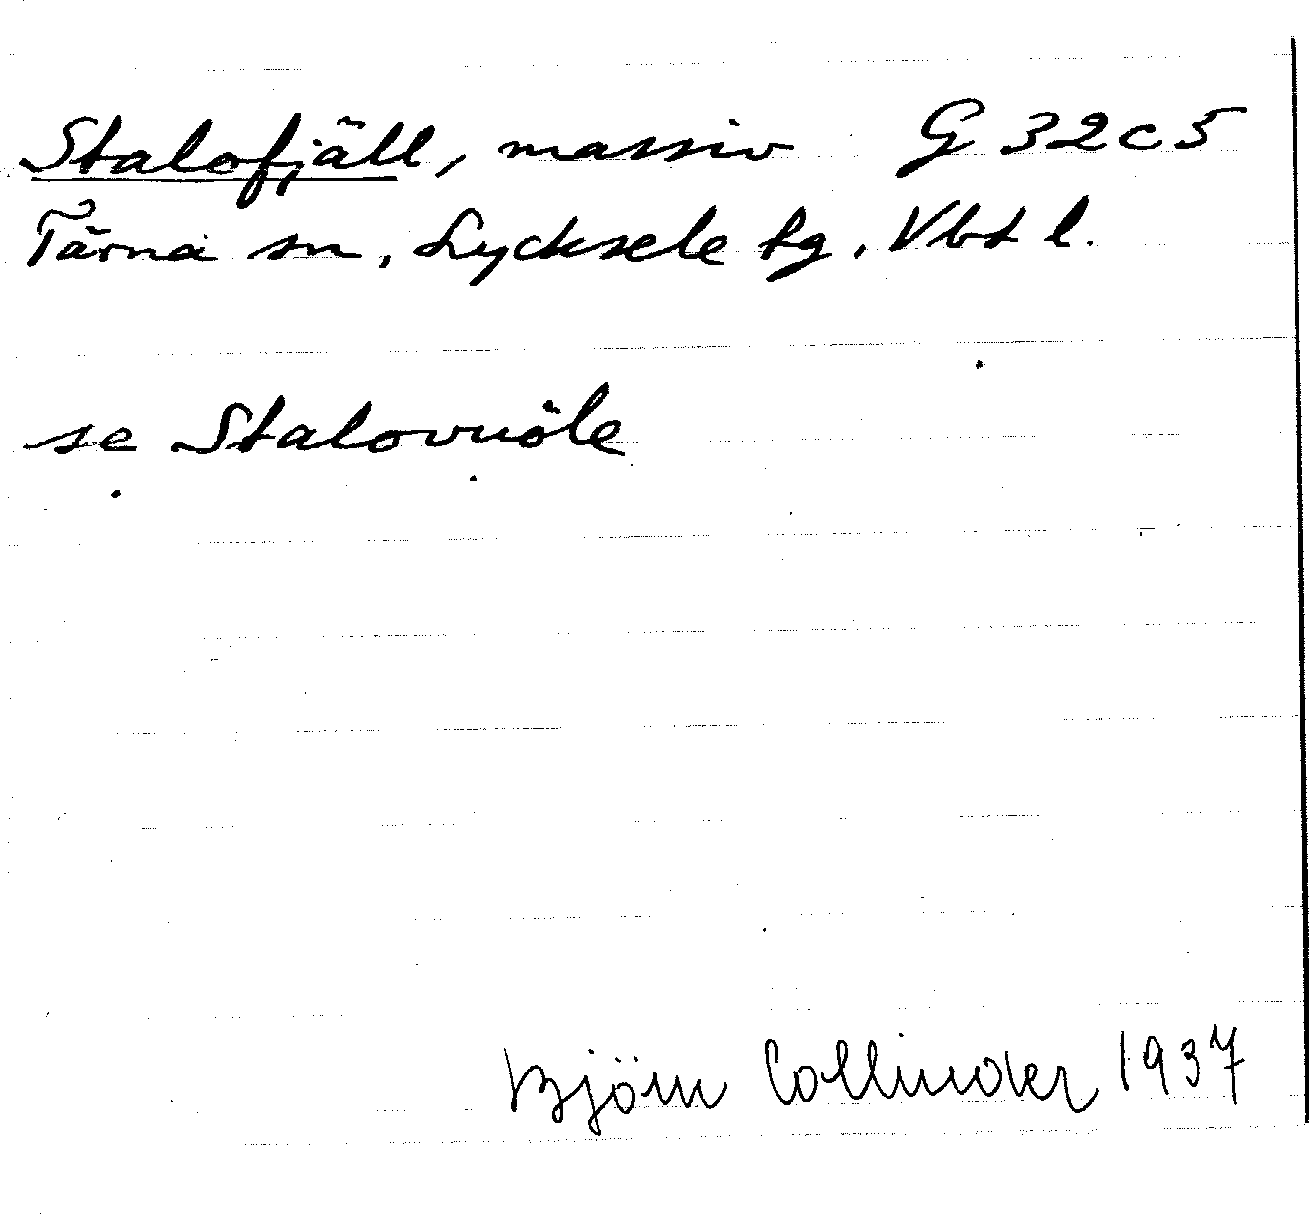 Stalofjäll, massiv G 32 c 5
Tärna sn, Lycksele tg, Vbt l.
se Stalovuöle
Björn Collinder 1937